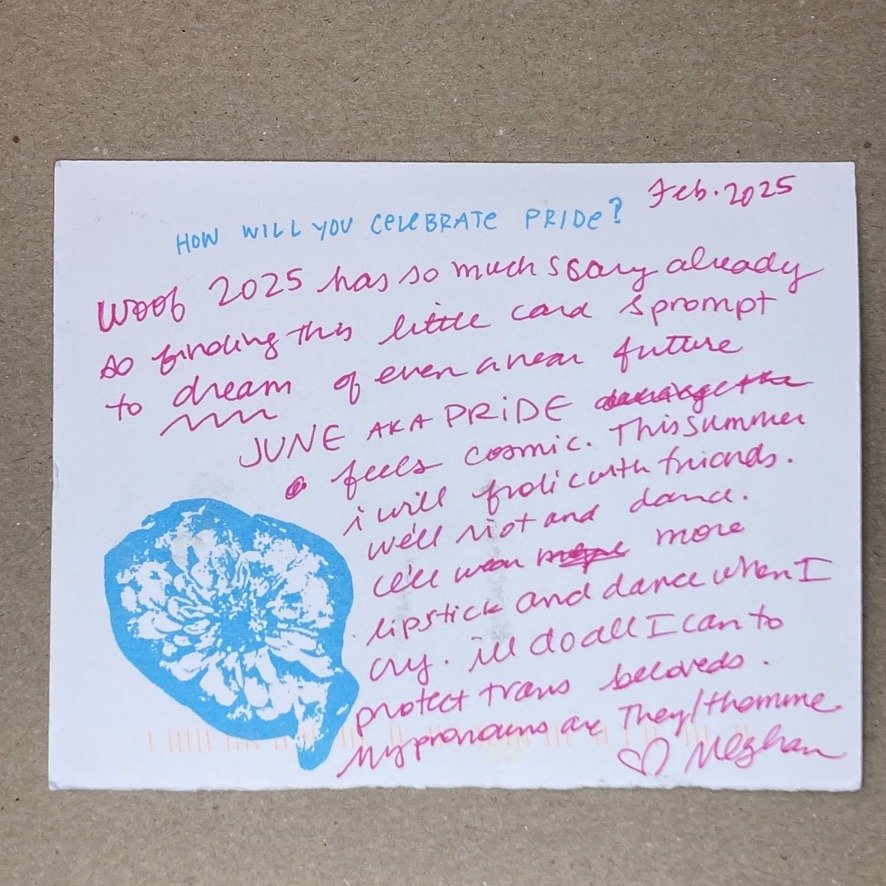 Feb. 2025
HOW WILL YOU CELEBRATE PRIDE?
Woof 2025 has so much scary already
so finding this little card & prompt
to dream of even a near future
JUNE AKA PRIDE
feels cosmic. This summer
i will frolic with friends.
we'll riot and dance.
wear more
lipstick and dance when I
cry. ill do all I can to
protect trans beloveds.
My pronouns are They/themme
♡ Meghan